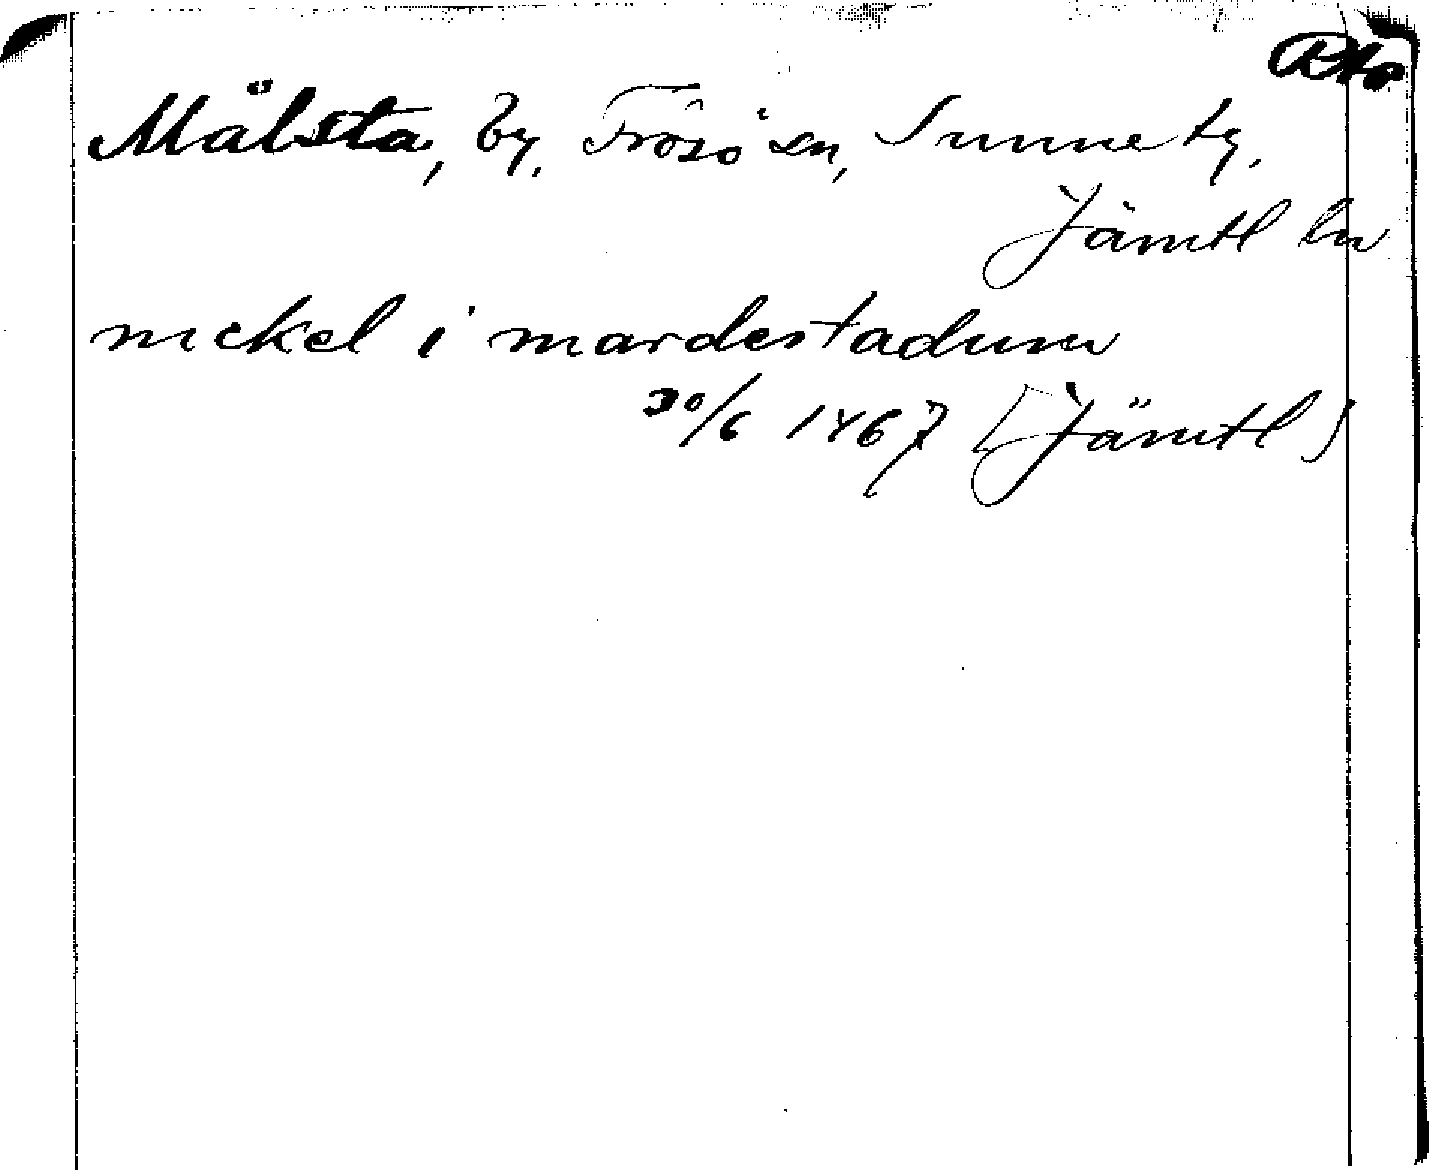 RAp
Mälsta, by, Frösö sn, Sunne tg.
Jämtl ln
nickel i mardestadum
30/6 1467 [Jämtl)